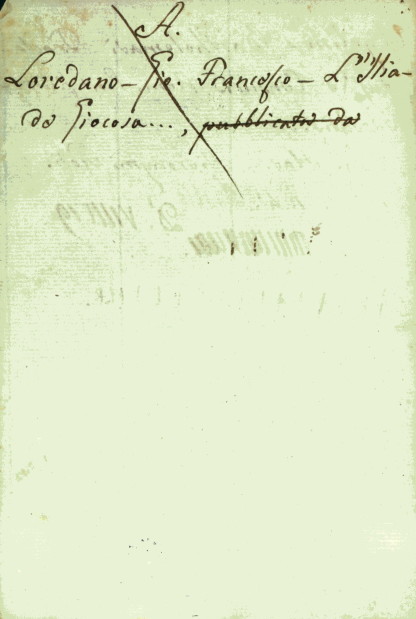 A.
Loredano - Gio. Francesco - L'Ilia-
de Giocosa..., pubblicata da